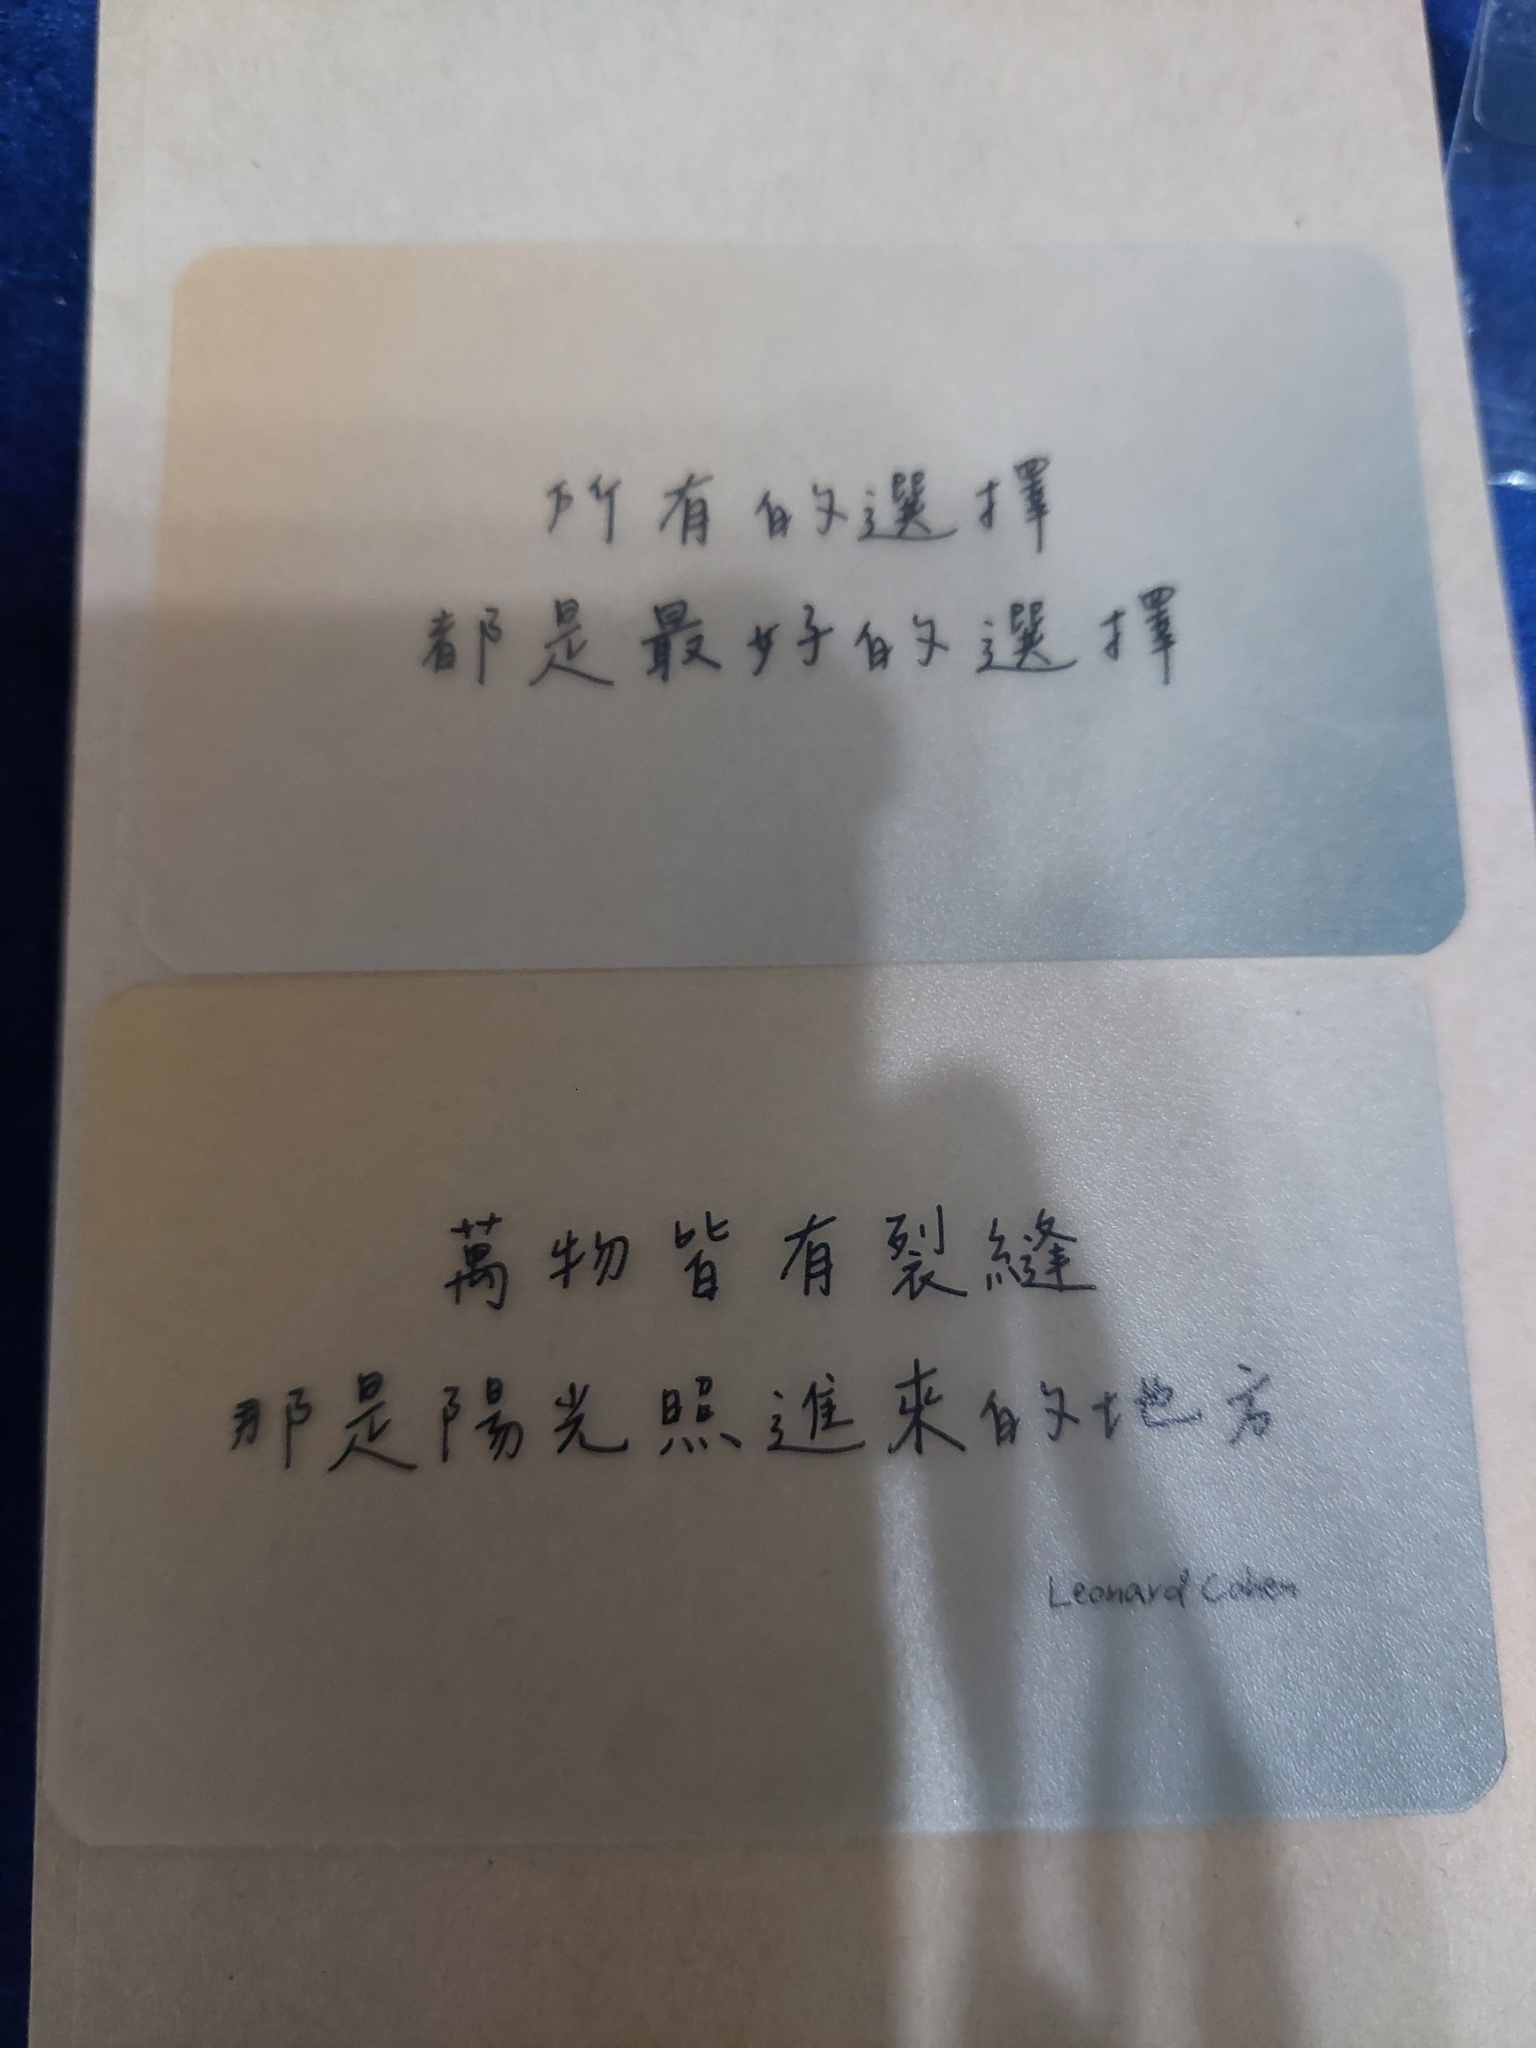 所有的選擇
都是最好的選擇
萬物皆有裂縫
那是陽光照進來的地方
Leonard Cohen